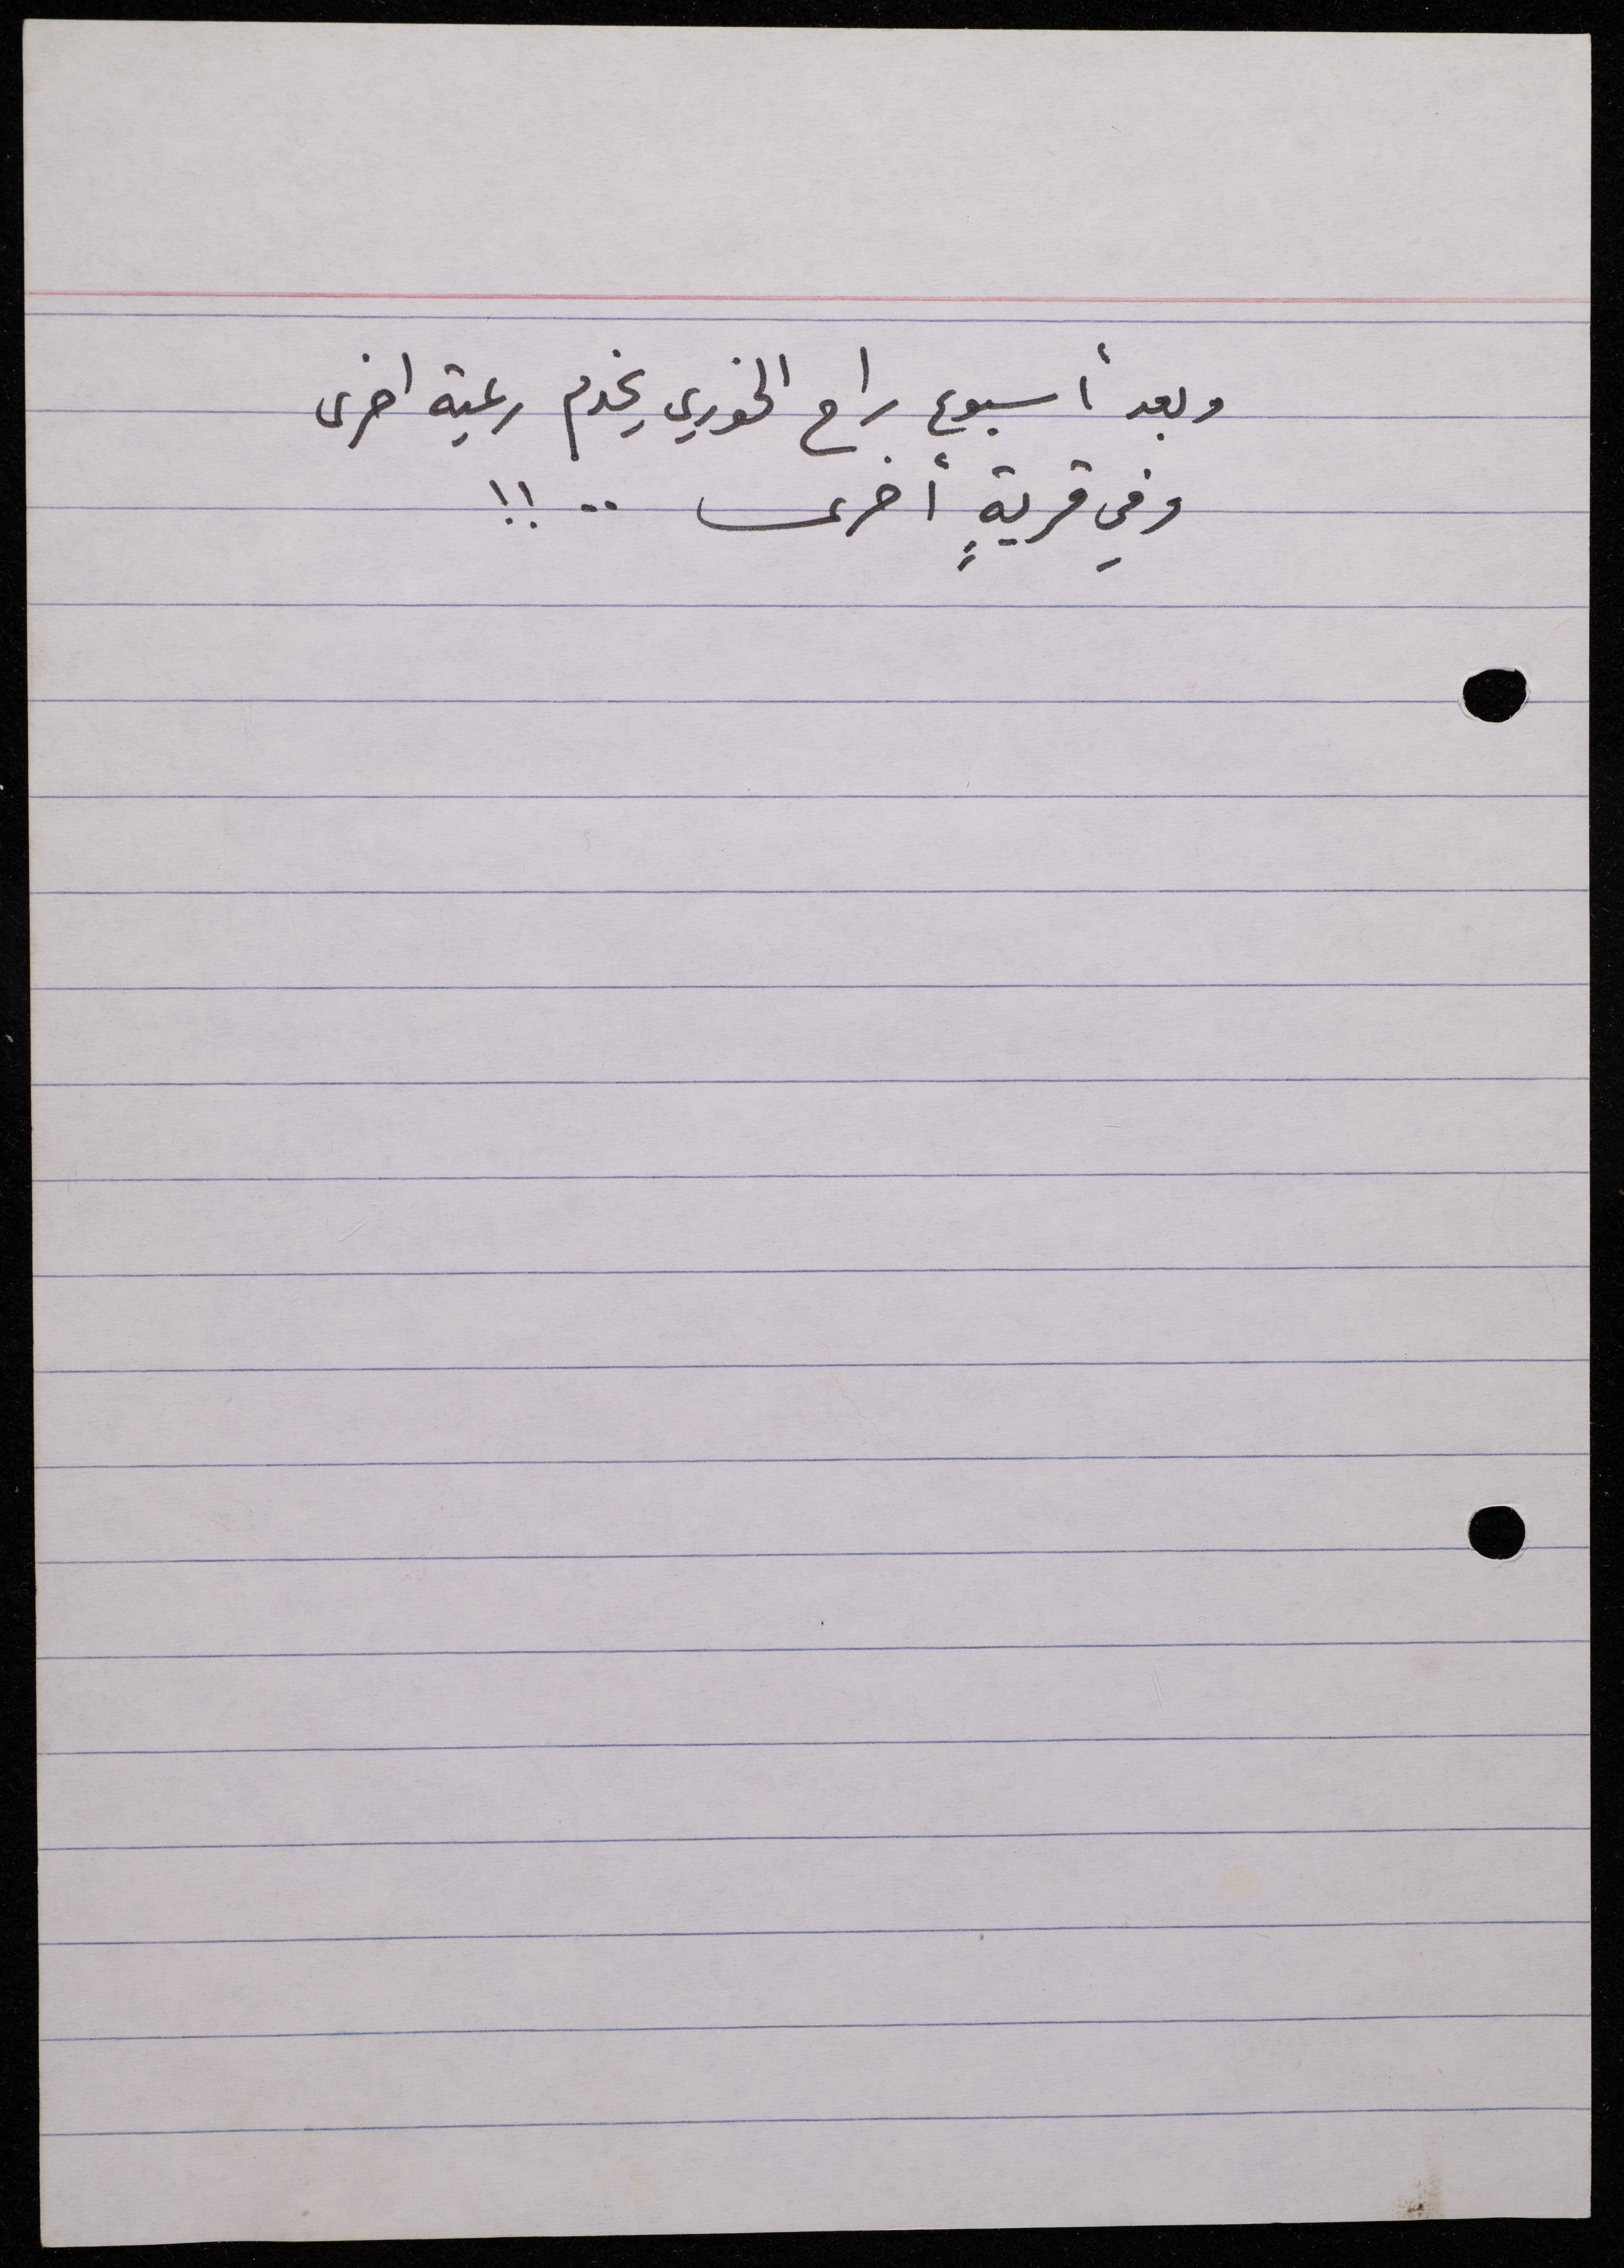 وبعد أسبوع راح الخوري يخدم رعية اخرى
وفي قريةٍ أخرى .. !!